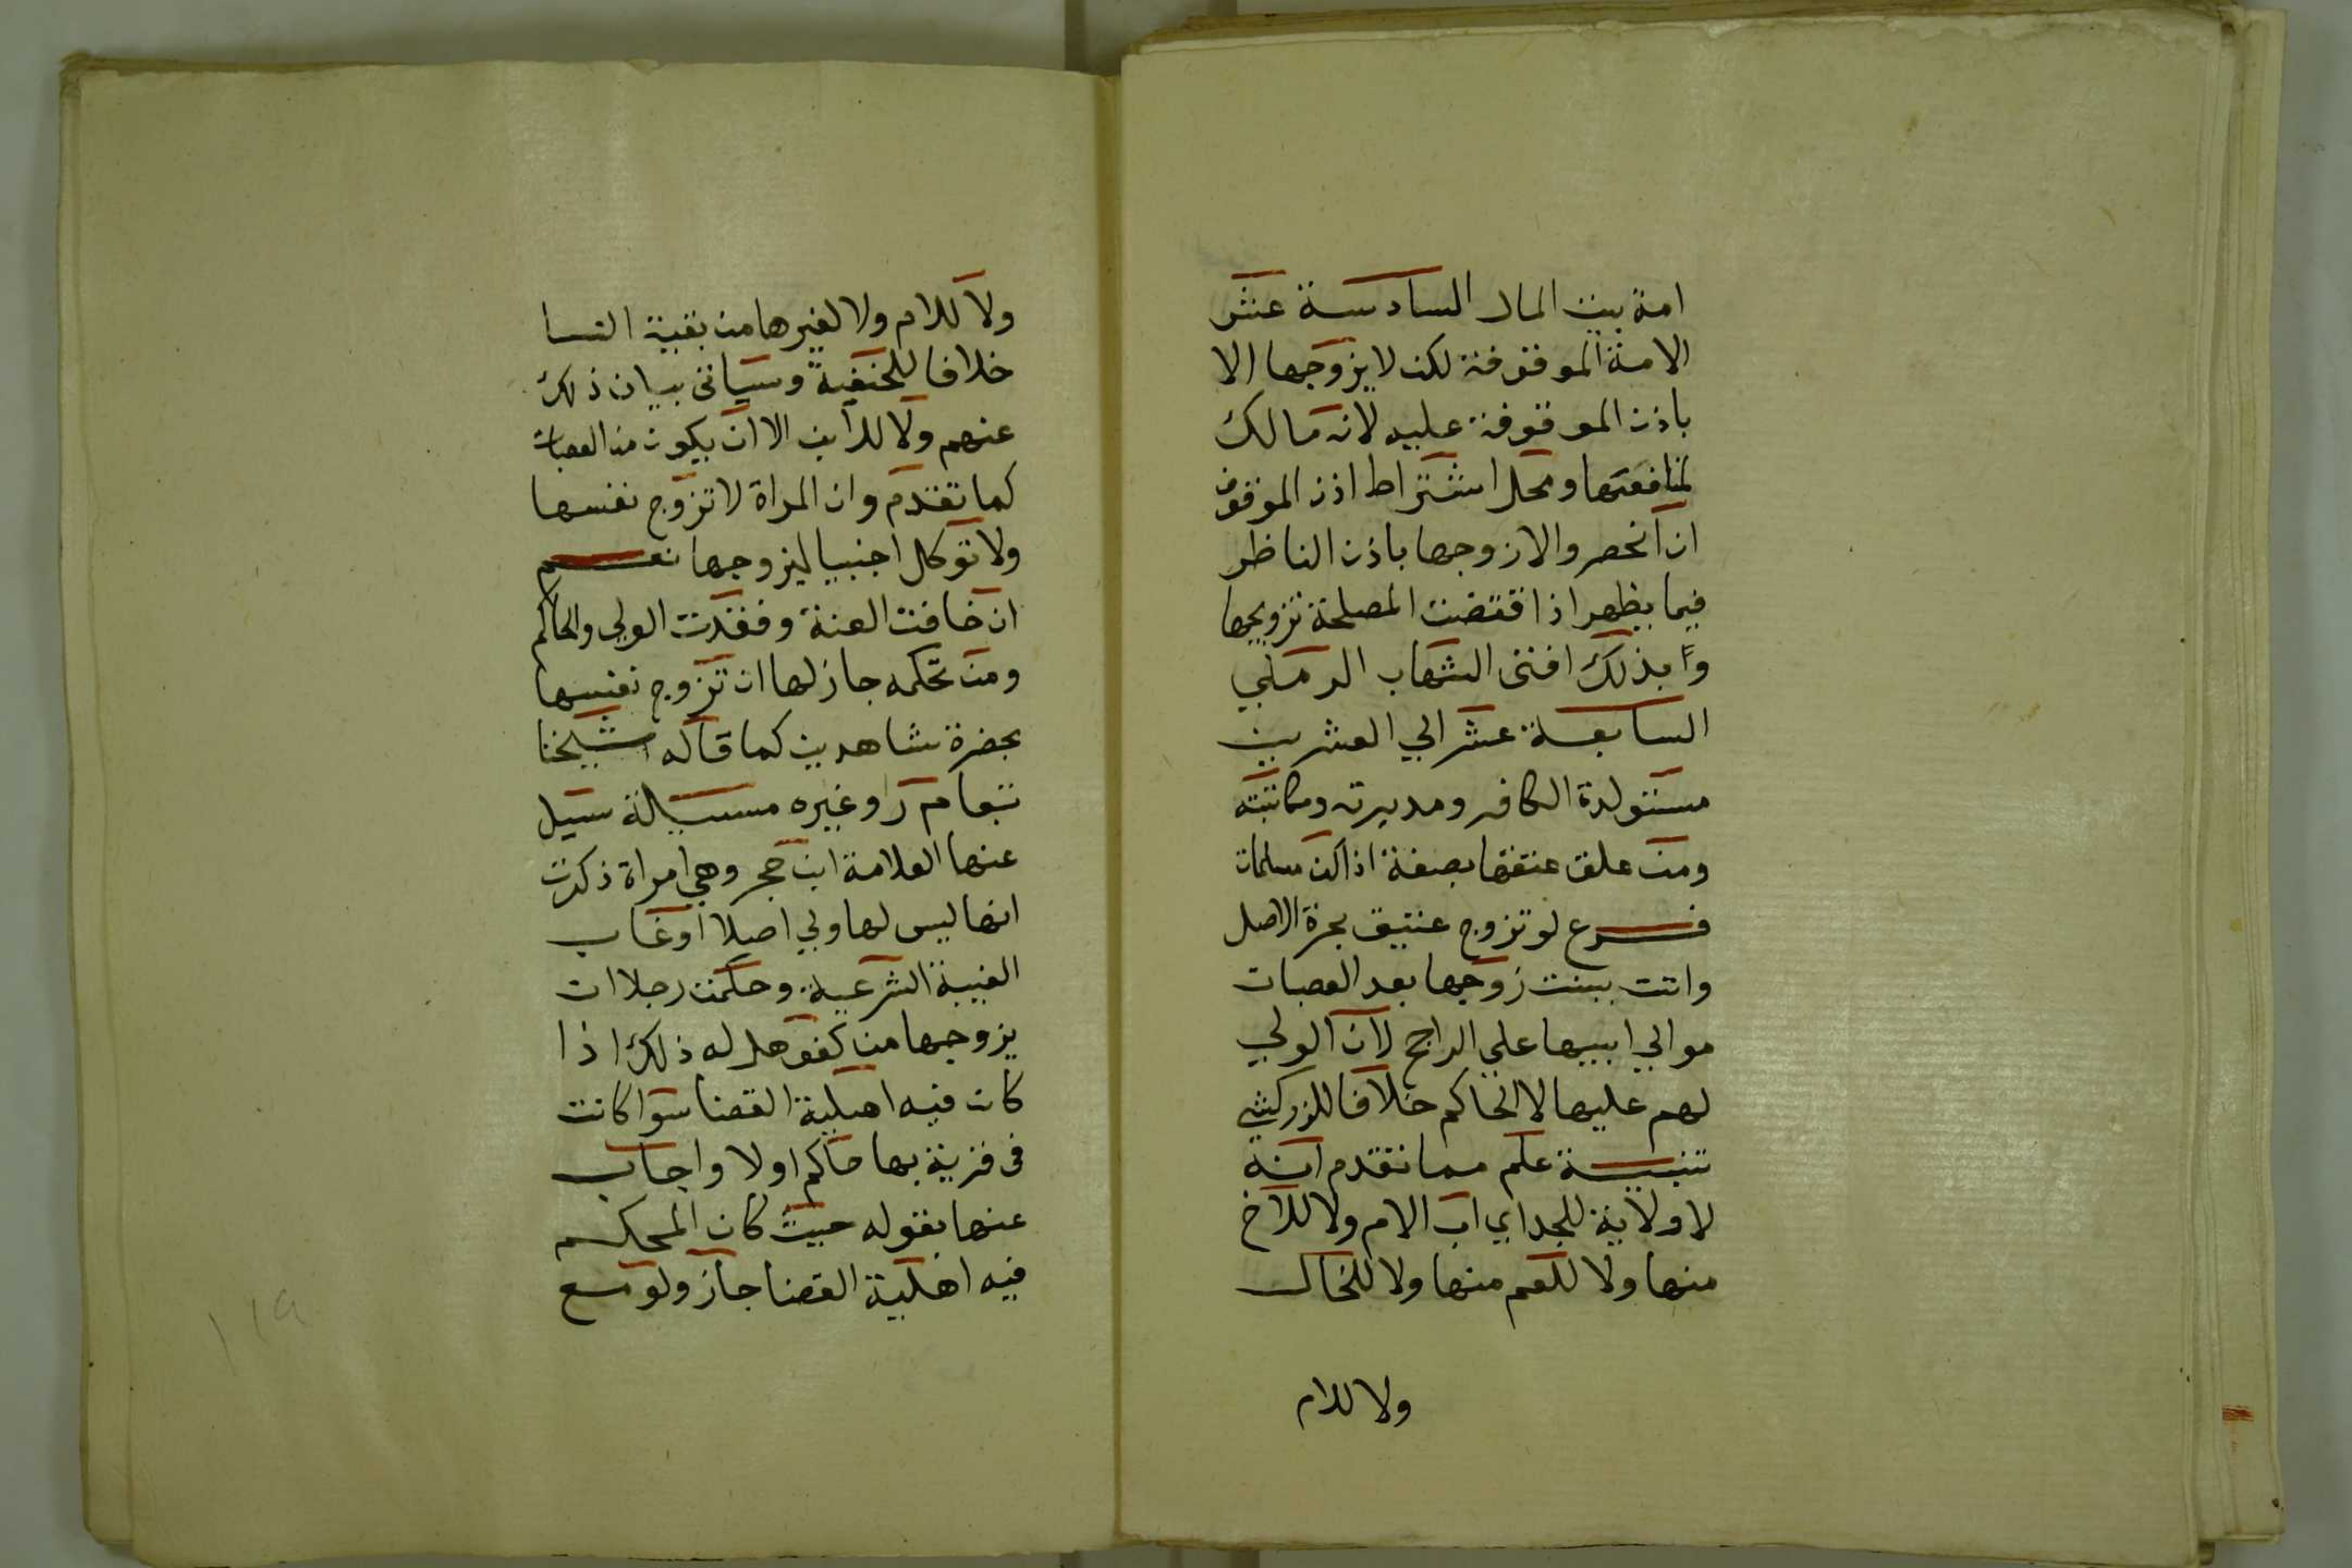 امة بيت المال السادسة عشر
الامة الموقوفة لكن لا يزوجها الا
باذن الموقوفة عليه لانه مالك
لمنافعها ومحل اشتراط اذن الموقوف
ان انحصر والا زوجها باذن الناظر
فيما يظهر اذا قتضت المصلحة تزويجها
وبذلك افتى الشهاب الرملي
السابعة عشر الي العشرين
مستولدة الكافر ومدبرته ومكاتبته
ومن علق عتقها بصفة اذا كن مسلمات
فرع لو تزوج عتيق بحرة الاصل
واتت ببنت زوجها بعد العصبات
موالي ابيها علي الراجح لان الولي
لهم عليها لا الحاكم خلافا للزركشي
تنبيه علم مما تقدم انه
لا ولاية للجد اي اب الام ولا للاخ
منها ولا للعم منها ولا للخال
ولا للام
ولا للام ولا لغيرها من بقية النسا
خلافا للحنفية وسياتى بيان ذلك
عنهم ولا للابن الا ان يكون من العصبات
كما تقدم وان المراة لا تزوج نفسها
ولا توكل اجنبيا ليزوجها نعم
ان خافت العنة وفقدت الولي والحاكم
ومن تحكمه جاز لها ان تزوج نفسها
بحضرة شاهدين كما قاله شيخنا
تبعا م ر وغيره مسيلة سيل
عنها العلامة ابن حجر وهي امراة ذكرت
انها ليس لها ولي اصلا او غاب
الغيبة الشرعية وحكمت رجلا ان
يزوجها من كفو هل له ذلك اذا
كان فيه اهلية القضا سوا كانت
فى قرية بها حاكم اولا واجاب
عنها بقوله حيث كان المحكم
فيه اهلية القضا جاز ولو مع
١١٩